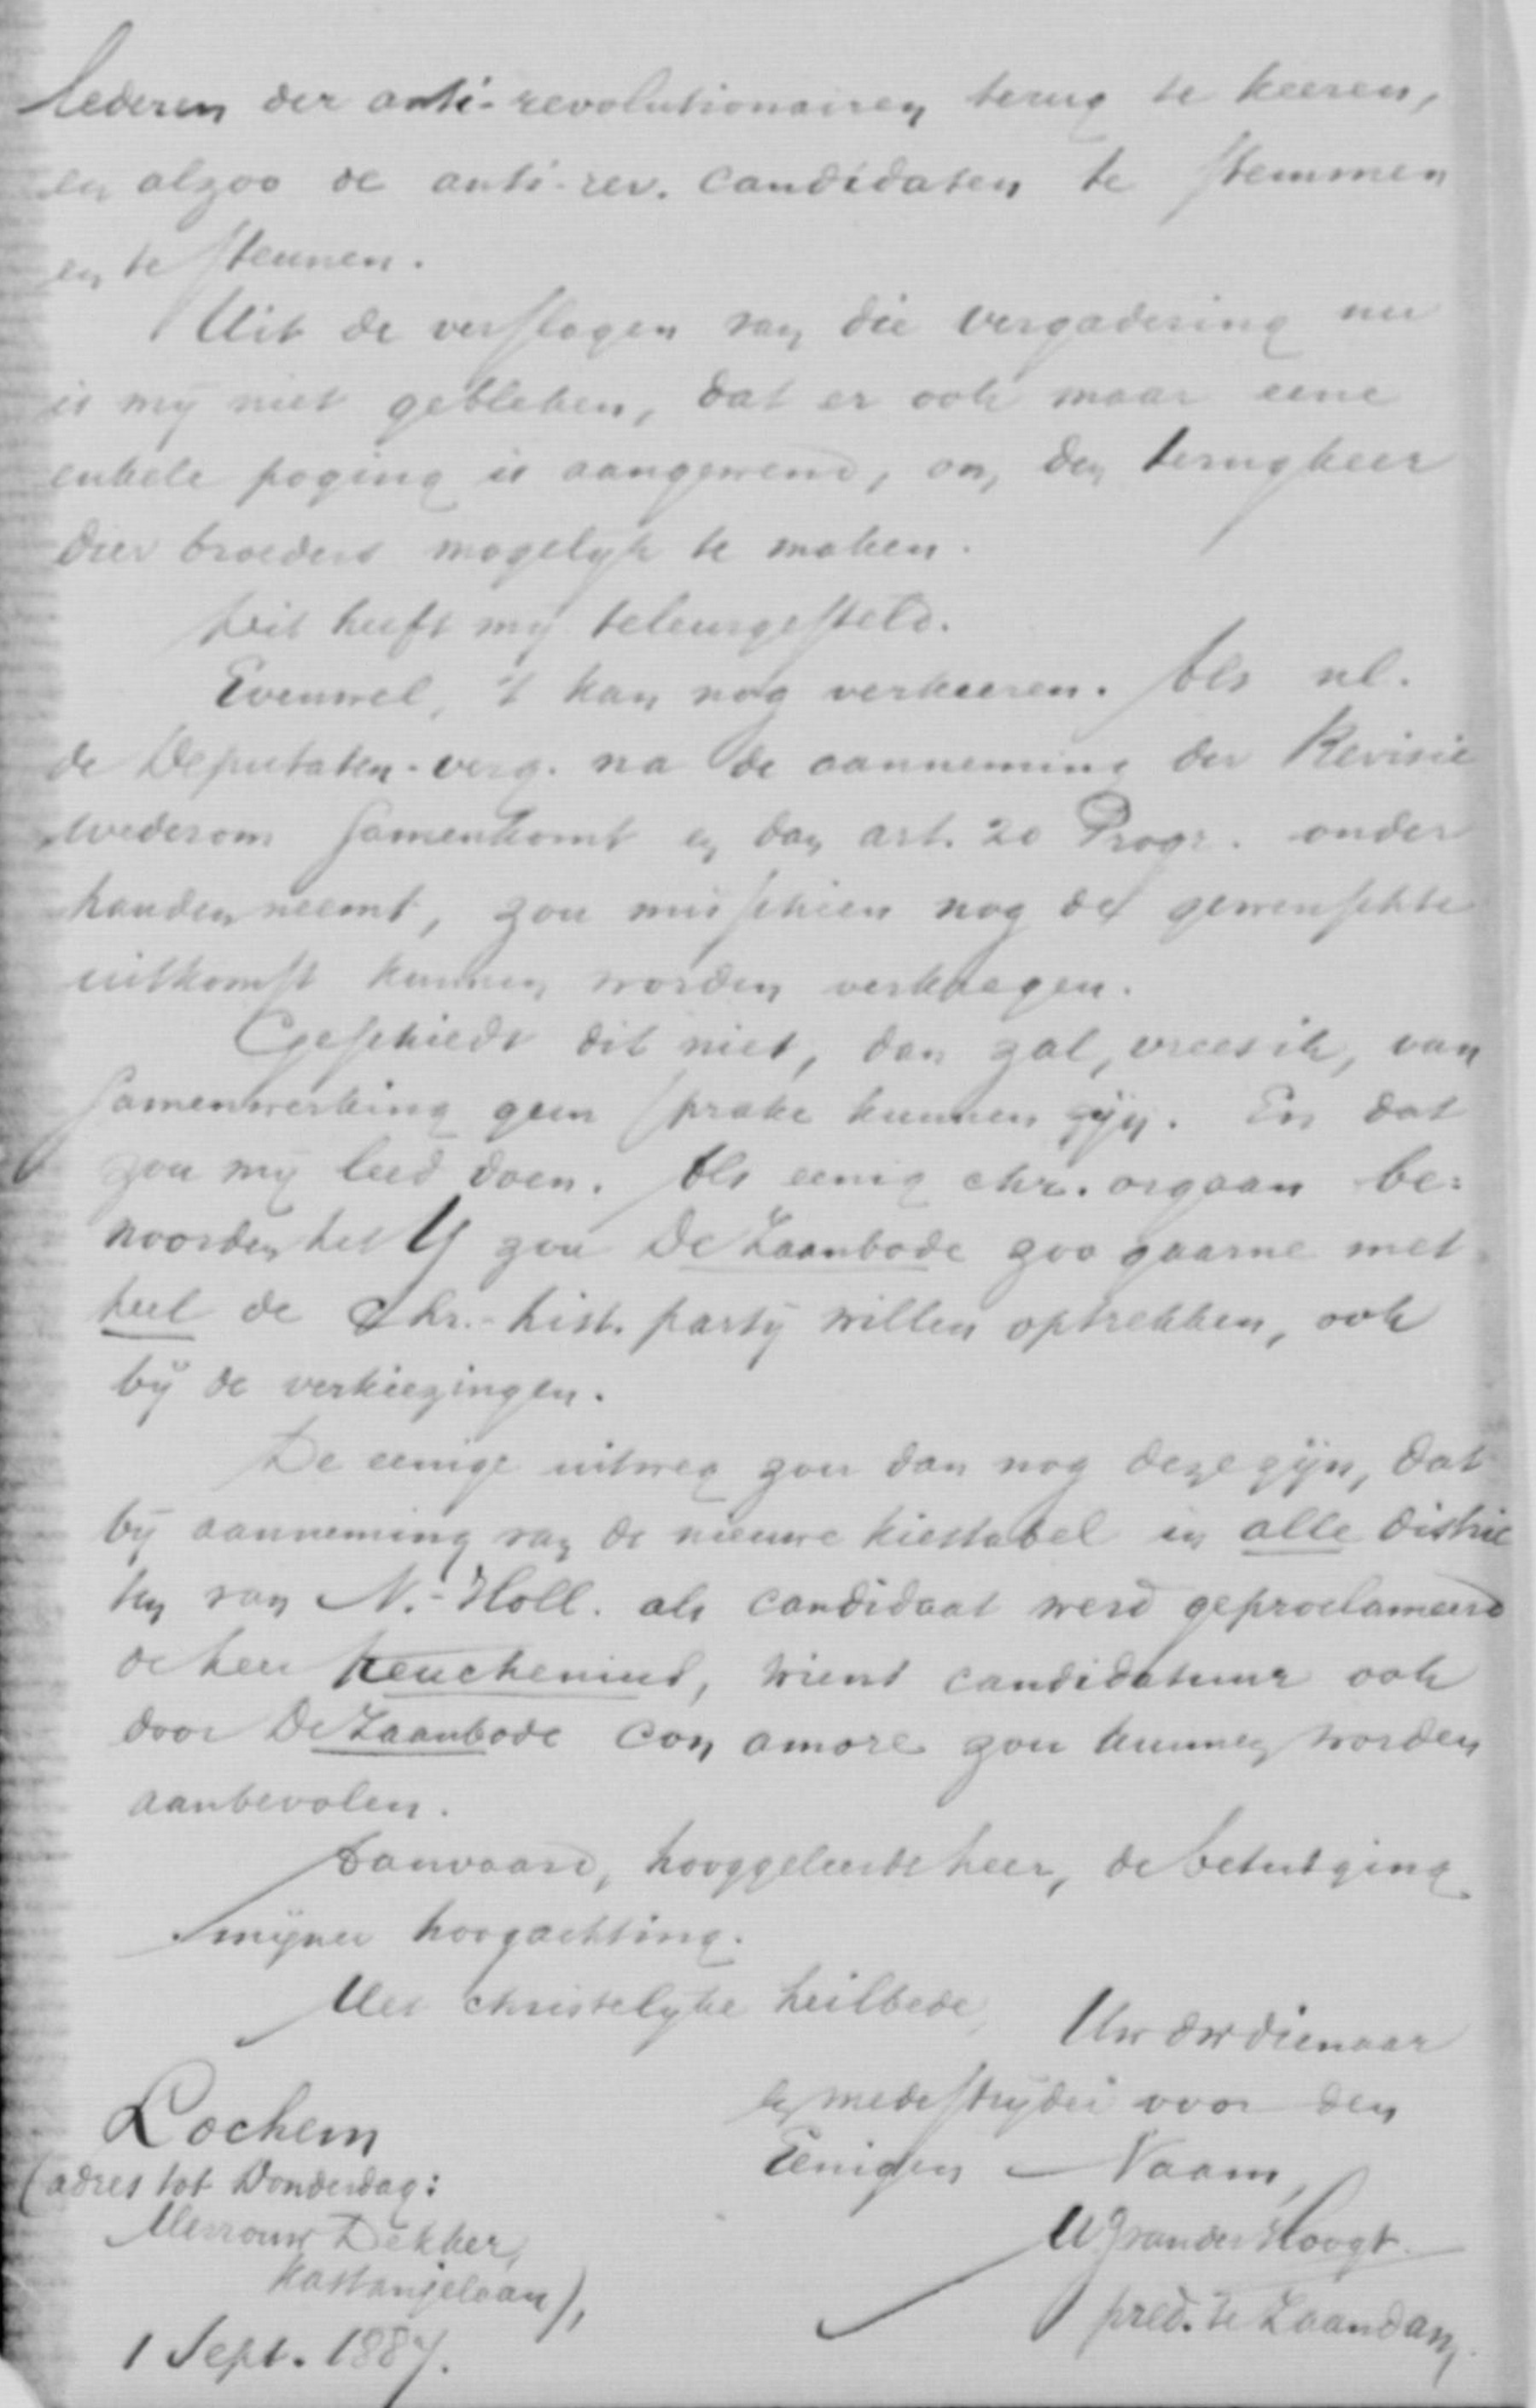 lederen der anti-revolutionairen terug te keeren,
en alzoo de anti-rev. candidaten te stemmen
en te steunen.
Uit de verslagen van die vergadering nu
is mij niet gebleken, dat er ook maar eene
enkele poging is aangewend, om den terugkeer
dier broeders mogelijk te maken.
Dit heeft mij teleurgesteld.
Evenwel, 't kan nog verkeeren. Als nl.
de Deputaten-verg. na de aanneming der Revisie
wederom samenkomt en dan art. 20 Progr. onder
handen neemt, zou misschien nog de gewenschte
uitkomst kunnen worden verkregen.
Geschiedt dit niet, dan zal, vrees ik, van
samenwerking geen sprake kunnen zijn. En dat
zou mij leed doen. Als eenig chr. orgaan be=
noorden het Y zou De Zaanbode zoo gaarne met
heel de Chr.-hist. partij willen optrekken, ook
bij de verkiezingen.
De eenige uitweg zou dan nog deze zijn, dat
bij aanneming van de nieuwe kiestabel in alle distric
ten van N.-Holl. als candidaat werd geproclameerd
de heer Keuchenius, wiens candidatuur ook
door De Zaanbode con amore zou kunnen worden
aanbevolen.
Aanvaard, hooggeleerde heer, de betuiging
mijner hoogachting.
Met christelijke heilbede,
Uw dw dienaar
en medestrijder voor den
Eenigen Naam,
van der Hoogt
pred. te Zaandam.
Lochem
(adres tot Donderdag:
Mevrouw Dekker,
Kastanjelaan),
1 Sept. 1887.